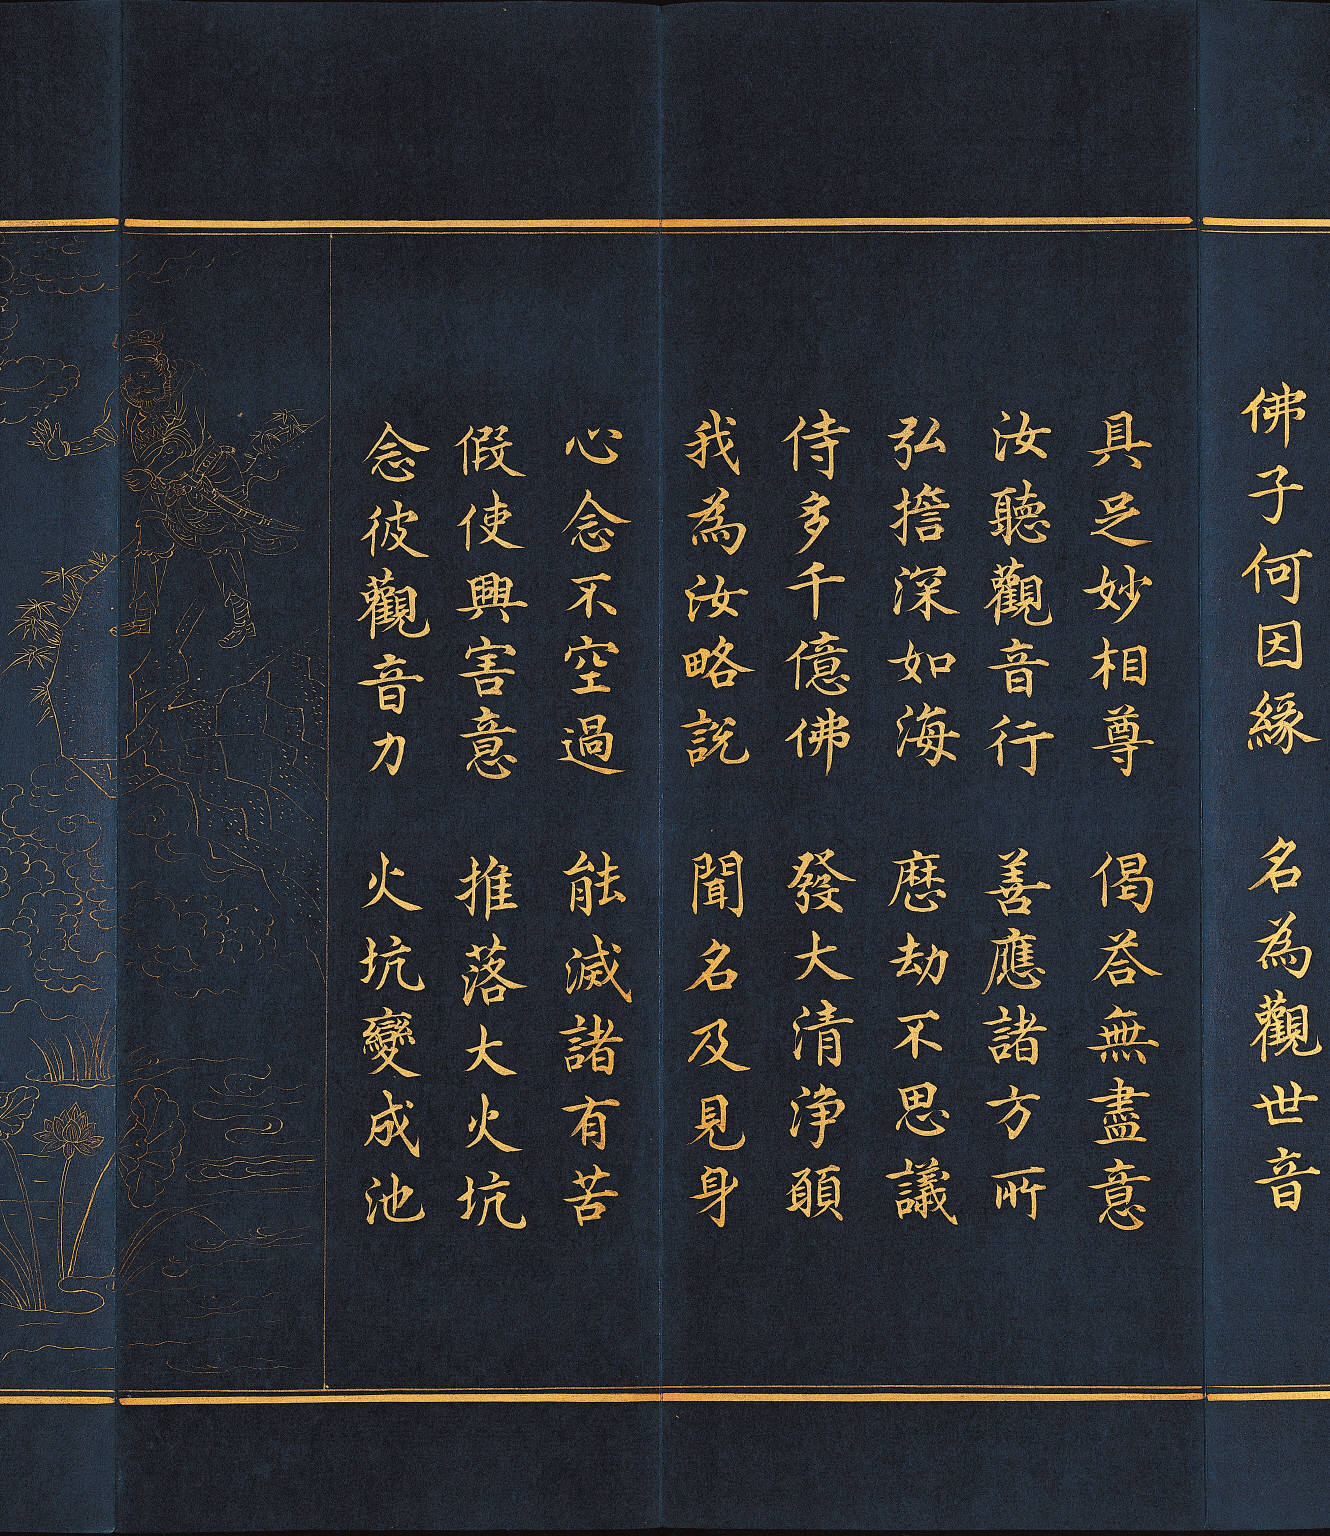 佛子何因緣　名為觀世音
具足妙相尊　偈荅無盡意
汝聽觀音行　善應諸方所
弘擔深如海　歷劫不思議
侍多千億佛　發大清淨願
我為汝略說　聞名及見身
心念不空過　能滅諸有苦
假使興害意　推落大火坑
念彼觀音力　火坑變成池